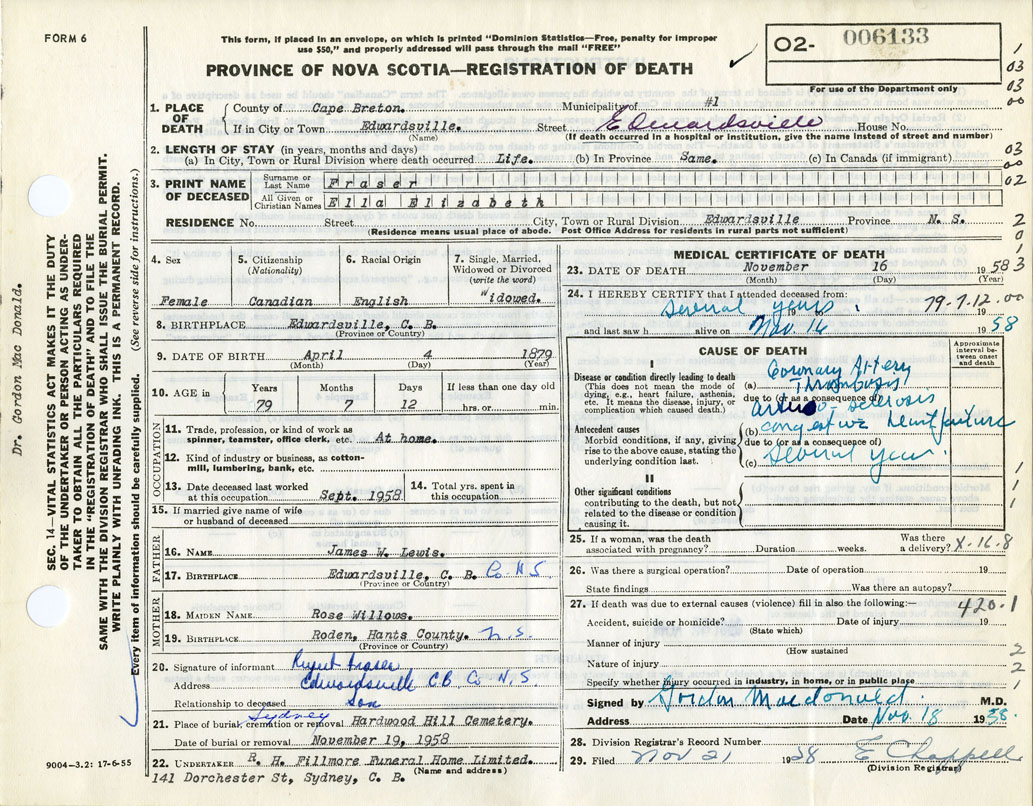 FORM 6
This form, if placed in an envelope, on which is printed "Dominion Statistics—Free, penalty for improper
use $50," and properly addressed will pass through the mail "FREE"
PROVINCE OF NOVA SCOTIA—REGISTRATION OF DEATH
02- 006133
For use of the Department only
1. PLACE OF DEATH
County of Cape Breton. Municipality of #1
If in City or Town Edwardsville. Street Edwardsville House No.
(Name) (If death occurred in a hospital or institution, give the name instead of street and number)
2. LENGTH OF STAY (in years, months and days)
(a) In City, Town or Rural Division where death occurred Life. (b) In Province Same. (c) In Canada (if immigrant)
3. PRINT NAME OF DECEASED
Surname or Last Name Fraser
All Given or Christian Names Ella Elizabeth
RESIDENCE No. Street City, Town or Rural Division Edwardsville Province N. S.
(Residence means usual place of abode. Post Office Address for residents in rural parts not sufficient)
4. Sex Female
5. Citizenship (Nationality) Canadian
6. Racial Origin English
7. Single, Married, Widowed or Divorced (write the word) Widowed.
8. BIRTHPLACE Edwardsville, C. B.
(Province or Country)
9. DATE OF BIRTH April 4 1879
(Month) (Day) (Year)
10. AGE in Years Months Days If less than one day old
79 7 12 hrs. or min.
OCCUPATION
11. Trade, profession, or kind of work as
spinner, teamster, office clerk, etc. At home.
12. Kind of industry or business, as cotton-
mill, lumbering, bank, etc.
13. Date deceased last worked
at this occupation Sept. 1958
14. Total yrs. spent in
this occupation
15. If married give name of wife
or husband of deceased
FATHER
16. NAME James W. Lewis.
17. BIRTHPLACE Edwardsville, C. B. Co N.S.
(Province or Country)
MOTHER
18. MAIDEN NAME Rose Willows.
19. BIRTHPLACE Roden, Hants County. N.S.
(Province or Country)
20. Signature of informant Fraser
Address Edwardsville C.B. Co N.S.
Relationship to deceased son
21. Place of burial, cremation or removal Sydney Hardwood Hill Cemetery.
Date of burial or removal November 19, 1958
22. UNDERTAKER R. H. Fillmore Funeral Home Limited.
(Name and address)
141 Dorchester St, Sydney, C. B.
9004—3.2: 17-6-55
MEDICAL CERTIFICATE OF DEATH
23. DATE OF DEATH November 16 1958
(Month) (Day) (Year)
24. I HEREBY CERTIFY that I attended deceased from:
Several years 19 to 79-7-12
and last saw h alive on Nov. 16 1958
CAUSE OF DEATH
Approximate interval between onset and death
I
Disease or condition directly leading to death
(This does not mean the mode of
dying, e.g., heart failure, asthenia,
etc. It means the disease, injury, or
complication which caused death.)
(a) Coronary Artery
Thrombosis
due to (or as a consequence of)
Antecedent causes
Morbid conditions, if any, giving
rise to the above cause, stating the
underlying condition last.
arterio-sclerosis
(b) congestive heart failure
due to (or as a consequence of)
(c) Several years.
II
Other significant conditions
contributing to the death, but not
related to the disease or condition
causing it.
25. If a woman, was the death
associated with pregnancy? Duration weeks. Was there
a delivery? X-16-8
26. Was there a surgical operation? Date of operation 19
State findings Was there an autopsy?
27. If death was due to external causes (violence) fill in also the following:— 420.1
Accident, suicide or homicide? Date of injury 19
(State which)
Manner of injury
(How sustained
Nature of injury
Specify whether injury occurred in industry, in home, or in public place
Signed by Gordon Macdonald. M.D.
Address Date Nov. 18 1958.
28. Division Registrar's Record Number
29. Filed Nov 21 1958 E Chappell
(Division Registrar)
Dr. Gordon Mac Donald.
SEC. 14—VITAL STATISTICS ACT MAKES IT THE DUTY
OF THE UNDERTAKER OR PERSON ACTING AS UNDER-
TAKER TO OBTAIN ALL THE PARTICULARS REQUIRED
IN THE "REGISTRATION OF DEATH" AND TO FILE THE
SAME WITH THE DIVISION REGISTRAR WHO SHALL ISSUE THE BURIAL PERMIT.
WRITE PLAINLY WITH UNFADING INK. THIS IS A PERMANENT RECORD.
Every item of information should be carefully supplied. (See reverse side for instructions.)
1
03
03
00
03
00
02
2
0
1
3
00
1
1
1
2
2
1